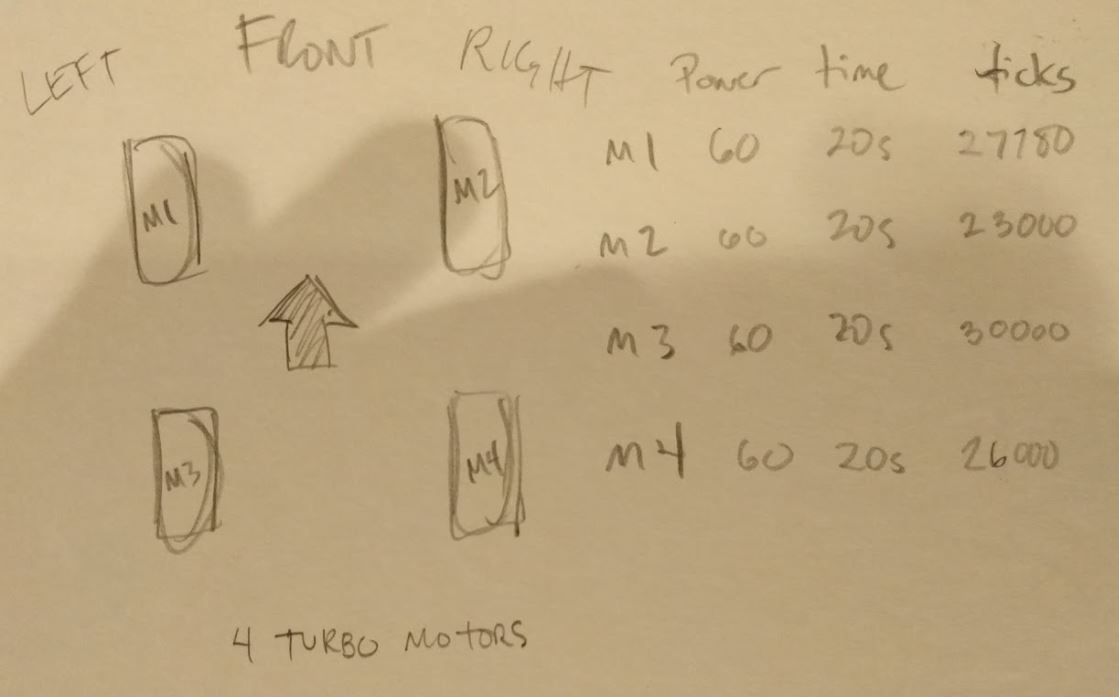 LEFT FRONT RIGHT Power time ticks
M1 M2 M1 60 20s 27780
M2 60 20s 23000
M3 60 20s 30000
M3 M4 M4 60 20s 26000
4 TURBO MOTORS